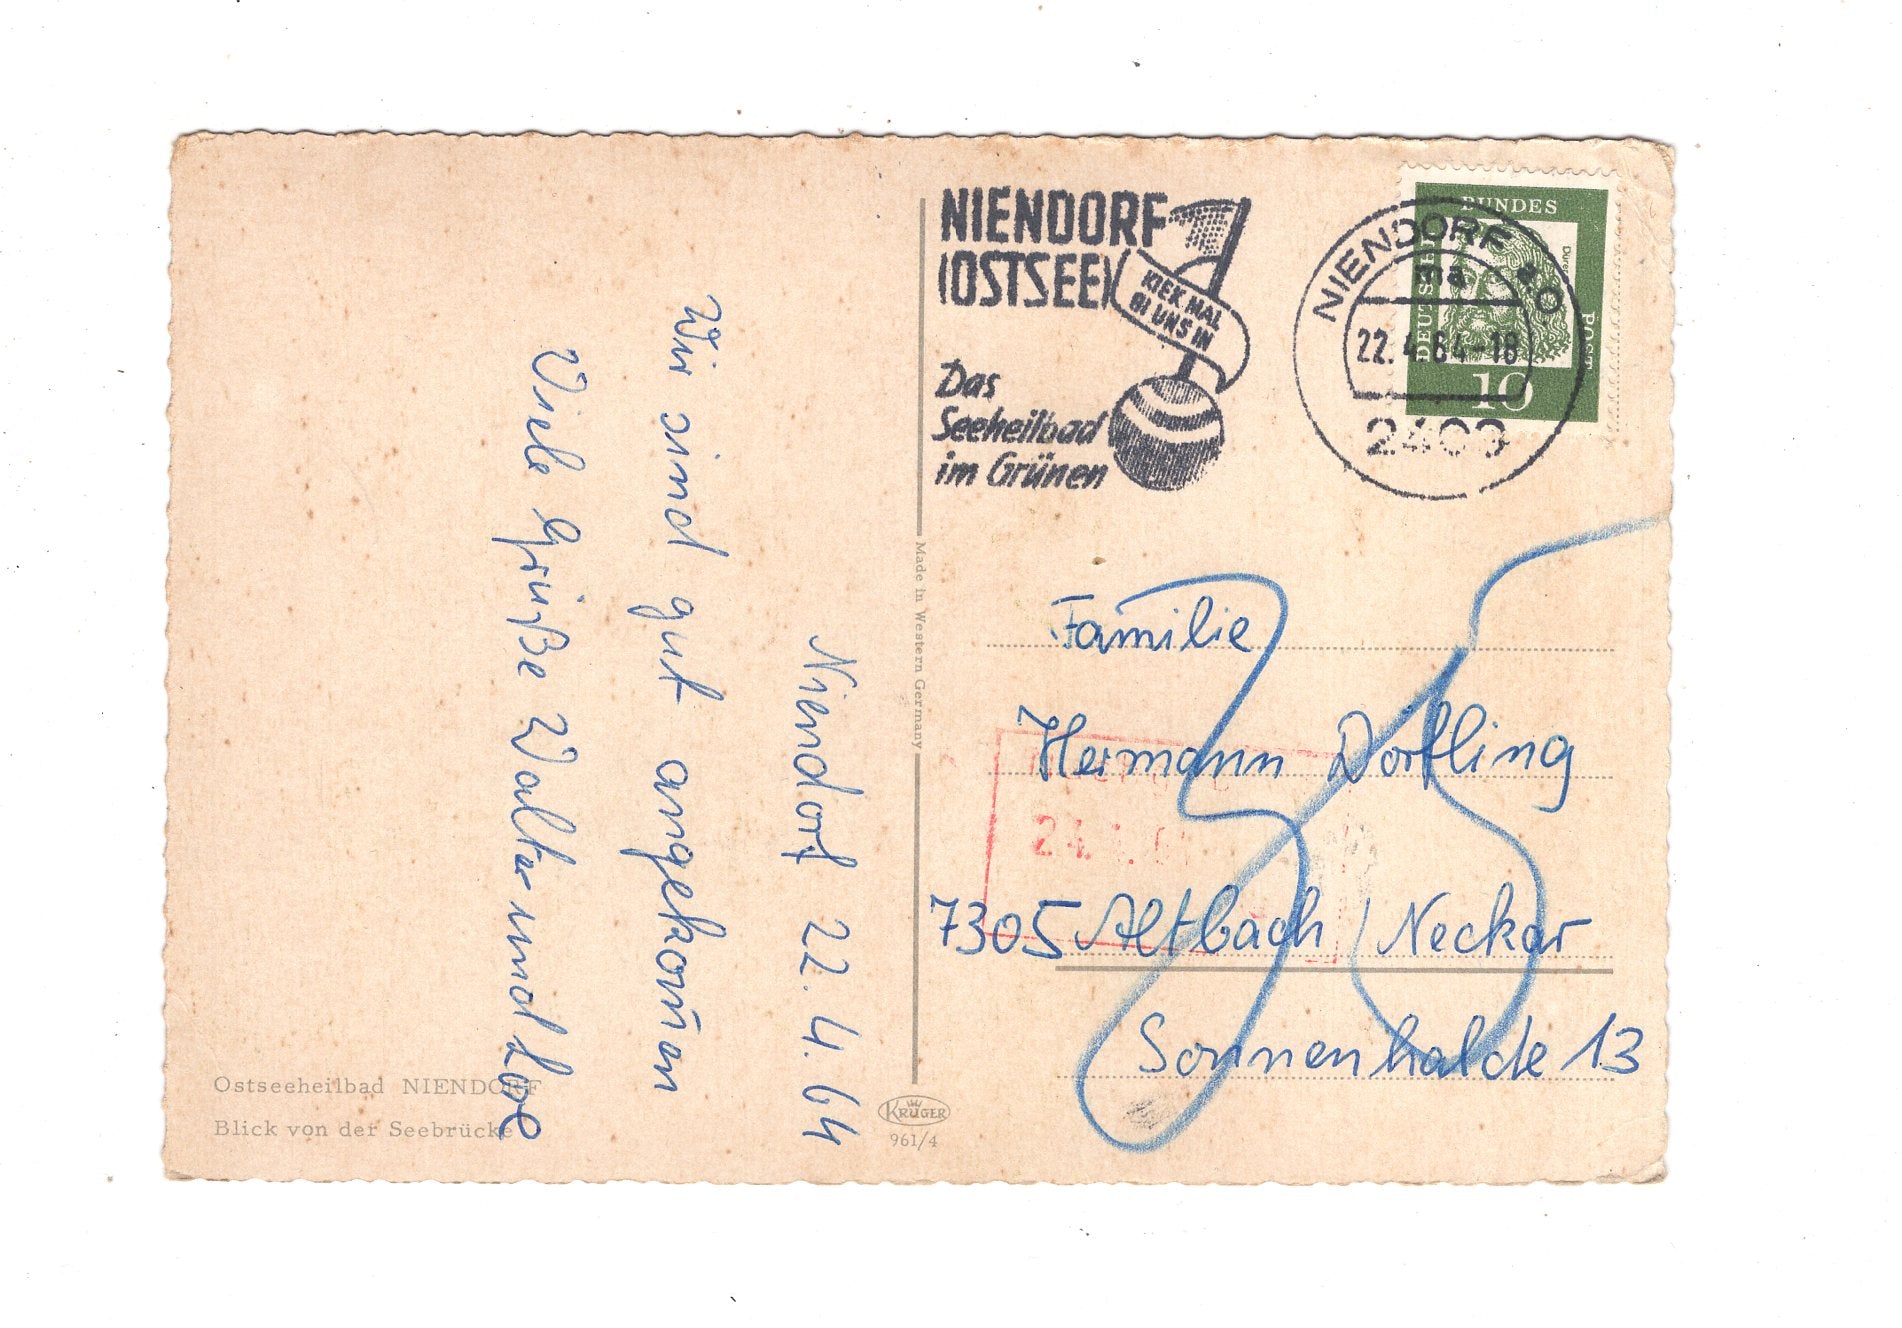 Niendorf 22.4.64
Wir sind gut angekom̄en
Viele Grüße Walter und
Ostseeheilbad NIENDORF
Blick von der Seebrücke
Made in Western Germany
KRÜGER
961/4
NIENDORF
(OSTSEE)
KIEK MAL
BI UNS IN
Das
Seeheilbad
im Grünen
NIENDORF
ma
22.4.64-18
2409
DEUTSCHE
BUNDES
POST
Dürer
10
Familie
Hermann Dörfling
7305 Altbach / Neckar
Sonnenhalde 13
24.